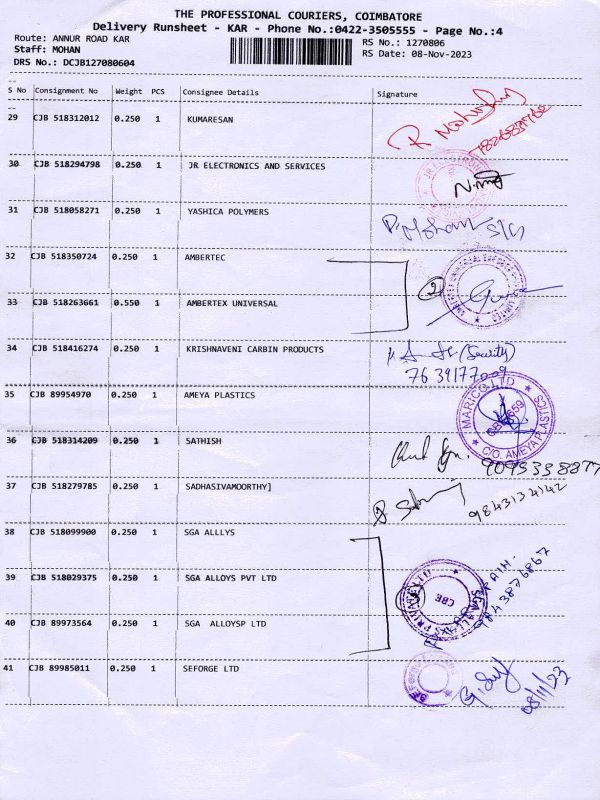 THE PROFESSIONAL COURIERS, COIMBATORE
Delivery Runsheet - KAR - Phone No.:0422-3505555 - Page No.:4
Route: ANNUR ROAD KAR
RS No.: 1270806
Staff: MOHAN
RS Date: 08-Nov-2023
DRS No.: DCJB127080604
S No Consignment No Weight PCS Consignee Details Signature
29 CJB 518312012 0.250 1 KUMARESAN
30 CJB 518294798 0.250 1 JR ELECTRONICS AND SERVICES
31 CJB 518058271 0.250 1 YASHICA POLYMERS
P. Mohan
32 CJB 518350724 0.250 1 AMBERTEC
2
33 CJB 518263661 0.550 1 AMBERTEX UNIVERSAL
34 CJB 518416274 0.250 1 KRISHNAVENI CARBIN PRODUCTS
(Security)
7639177009
35 CJB 89954970 0.250 1 AMEYA PLASTICS
MARICO LTD
C/O. AMEYA PLASTICS
36 CJB 518314209 0.250 1 SATHISH
37 CJB 518279785 0.250 1 SADHASIVAMOORTHY]
9843134142
38 CJB 518099900 0.250 1 SGA ALLLYS
39 CJB 518029375 0.250 1 SGA ALLOYS PVT LTD
CBE
9843876867
40 CJB 89973564 0.250 1 SGA ALLOYSP LTD
41 CJB 89985011 0.250 1 SEFORGE LTD
08/11/23